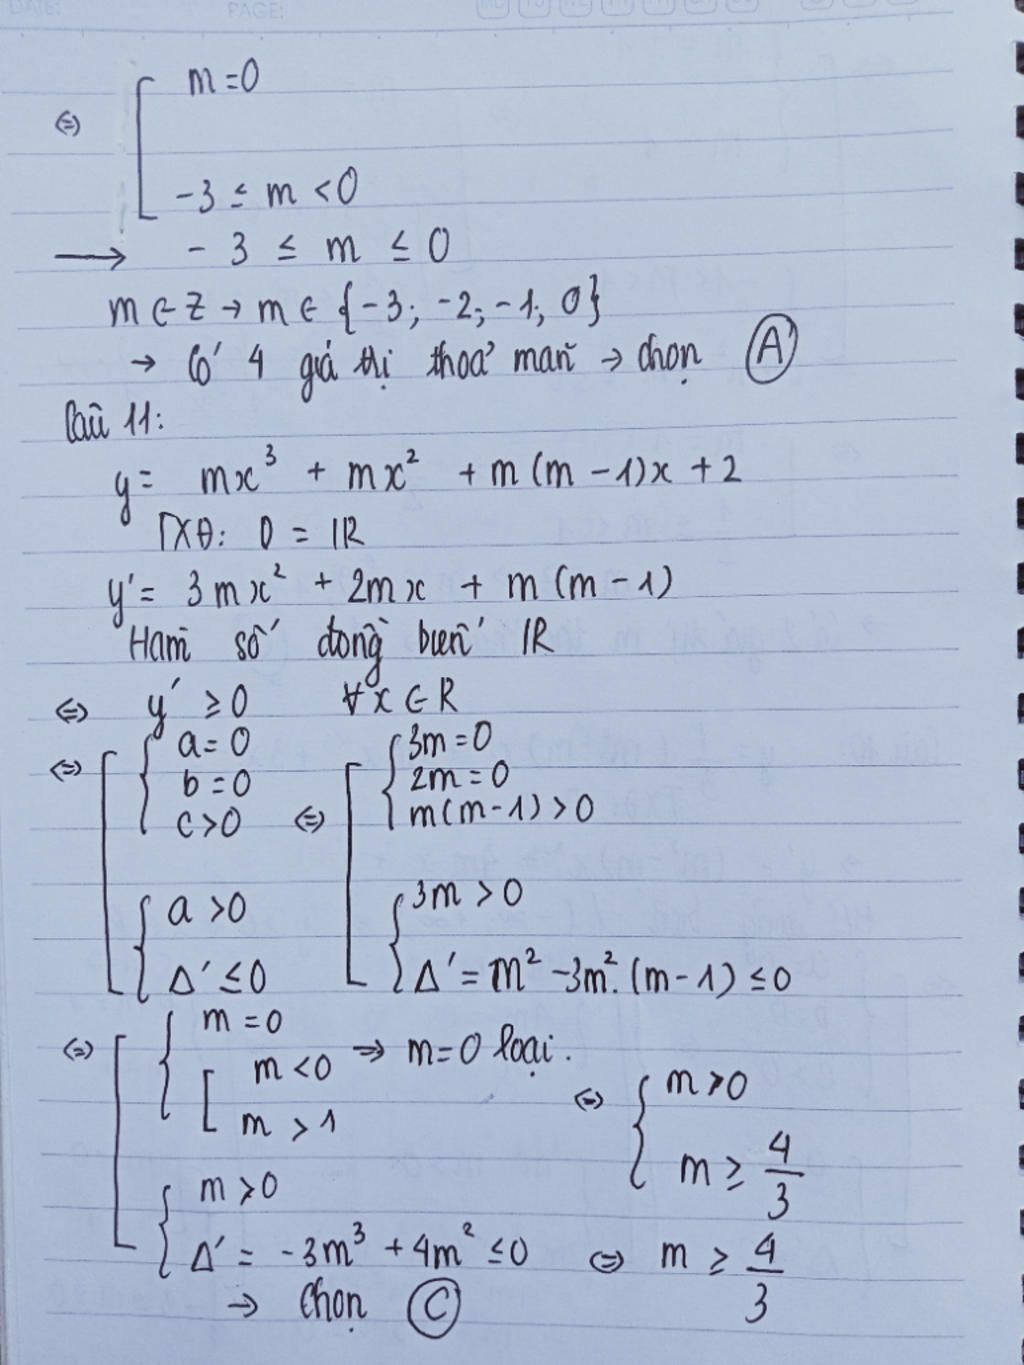 DATE: PAGE:
⇔ [ m = 0
-3 ≤ m < 0
→ -3 ≤ m ≤ 0
m ∈ Z → m ∈ {-3; -2; -1; 0}
→ Có 4 giá trị thoả mãn → chọn A
Câu 11:
y = mx³ + mx² + m(m - 1)x + 2
TXĐ: D = IR
y' = 3mx² + 2mx + m(m - 1)
Hàm số đồng biến IR
⇔ y' ≥ 0 ∀x ∈ R
⇔ [ { a = 0 [ { 3m = 0
b = 0 2m = 0
c > 0 ⇔ m(m - 1) > 0
{ a > 0 { 3m > 0
Δ' ≤ 0 Δ' = m² - 3m².(m - 1) ≤ 0
⇔ [ { m = 0
[ m < 0 → m = 0 loại.
m > 1 ⇔ { m > 0
m ≥ 4/3
{ m > 0
Δ' = -3m³ + 4m² ≤ 0 ⇔ m ≥ 4/3
→ Chọn C